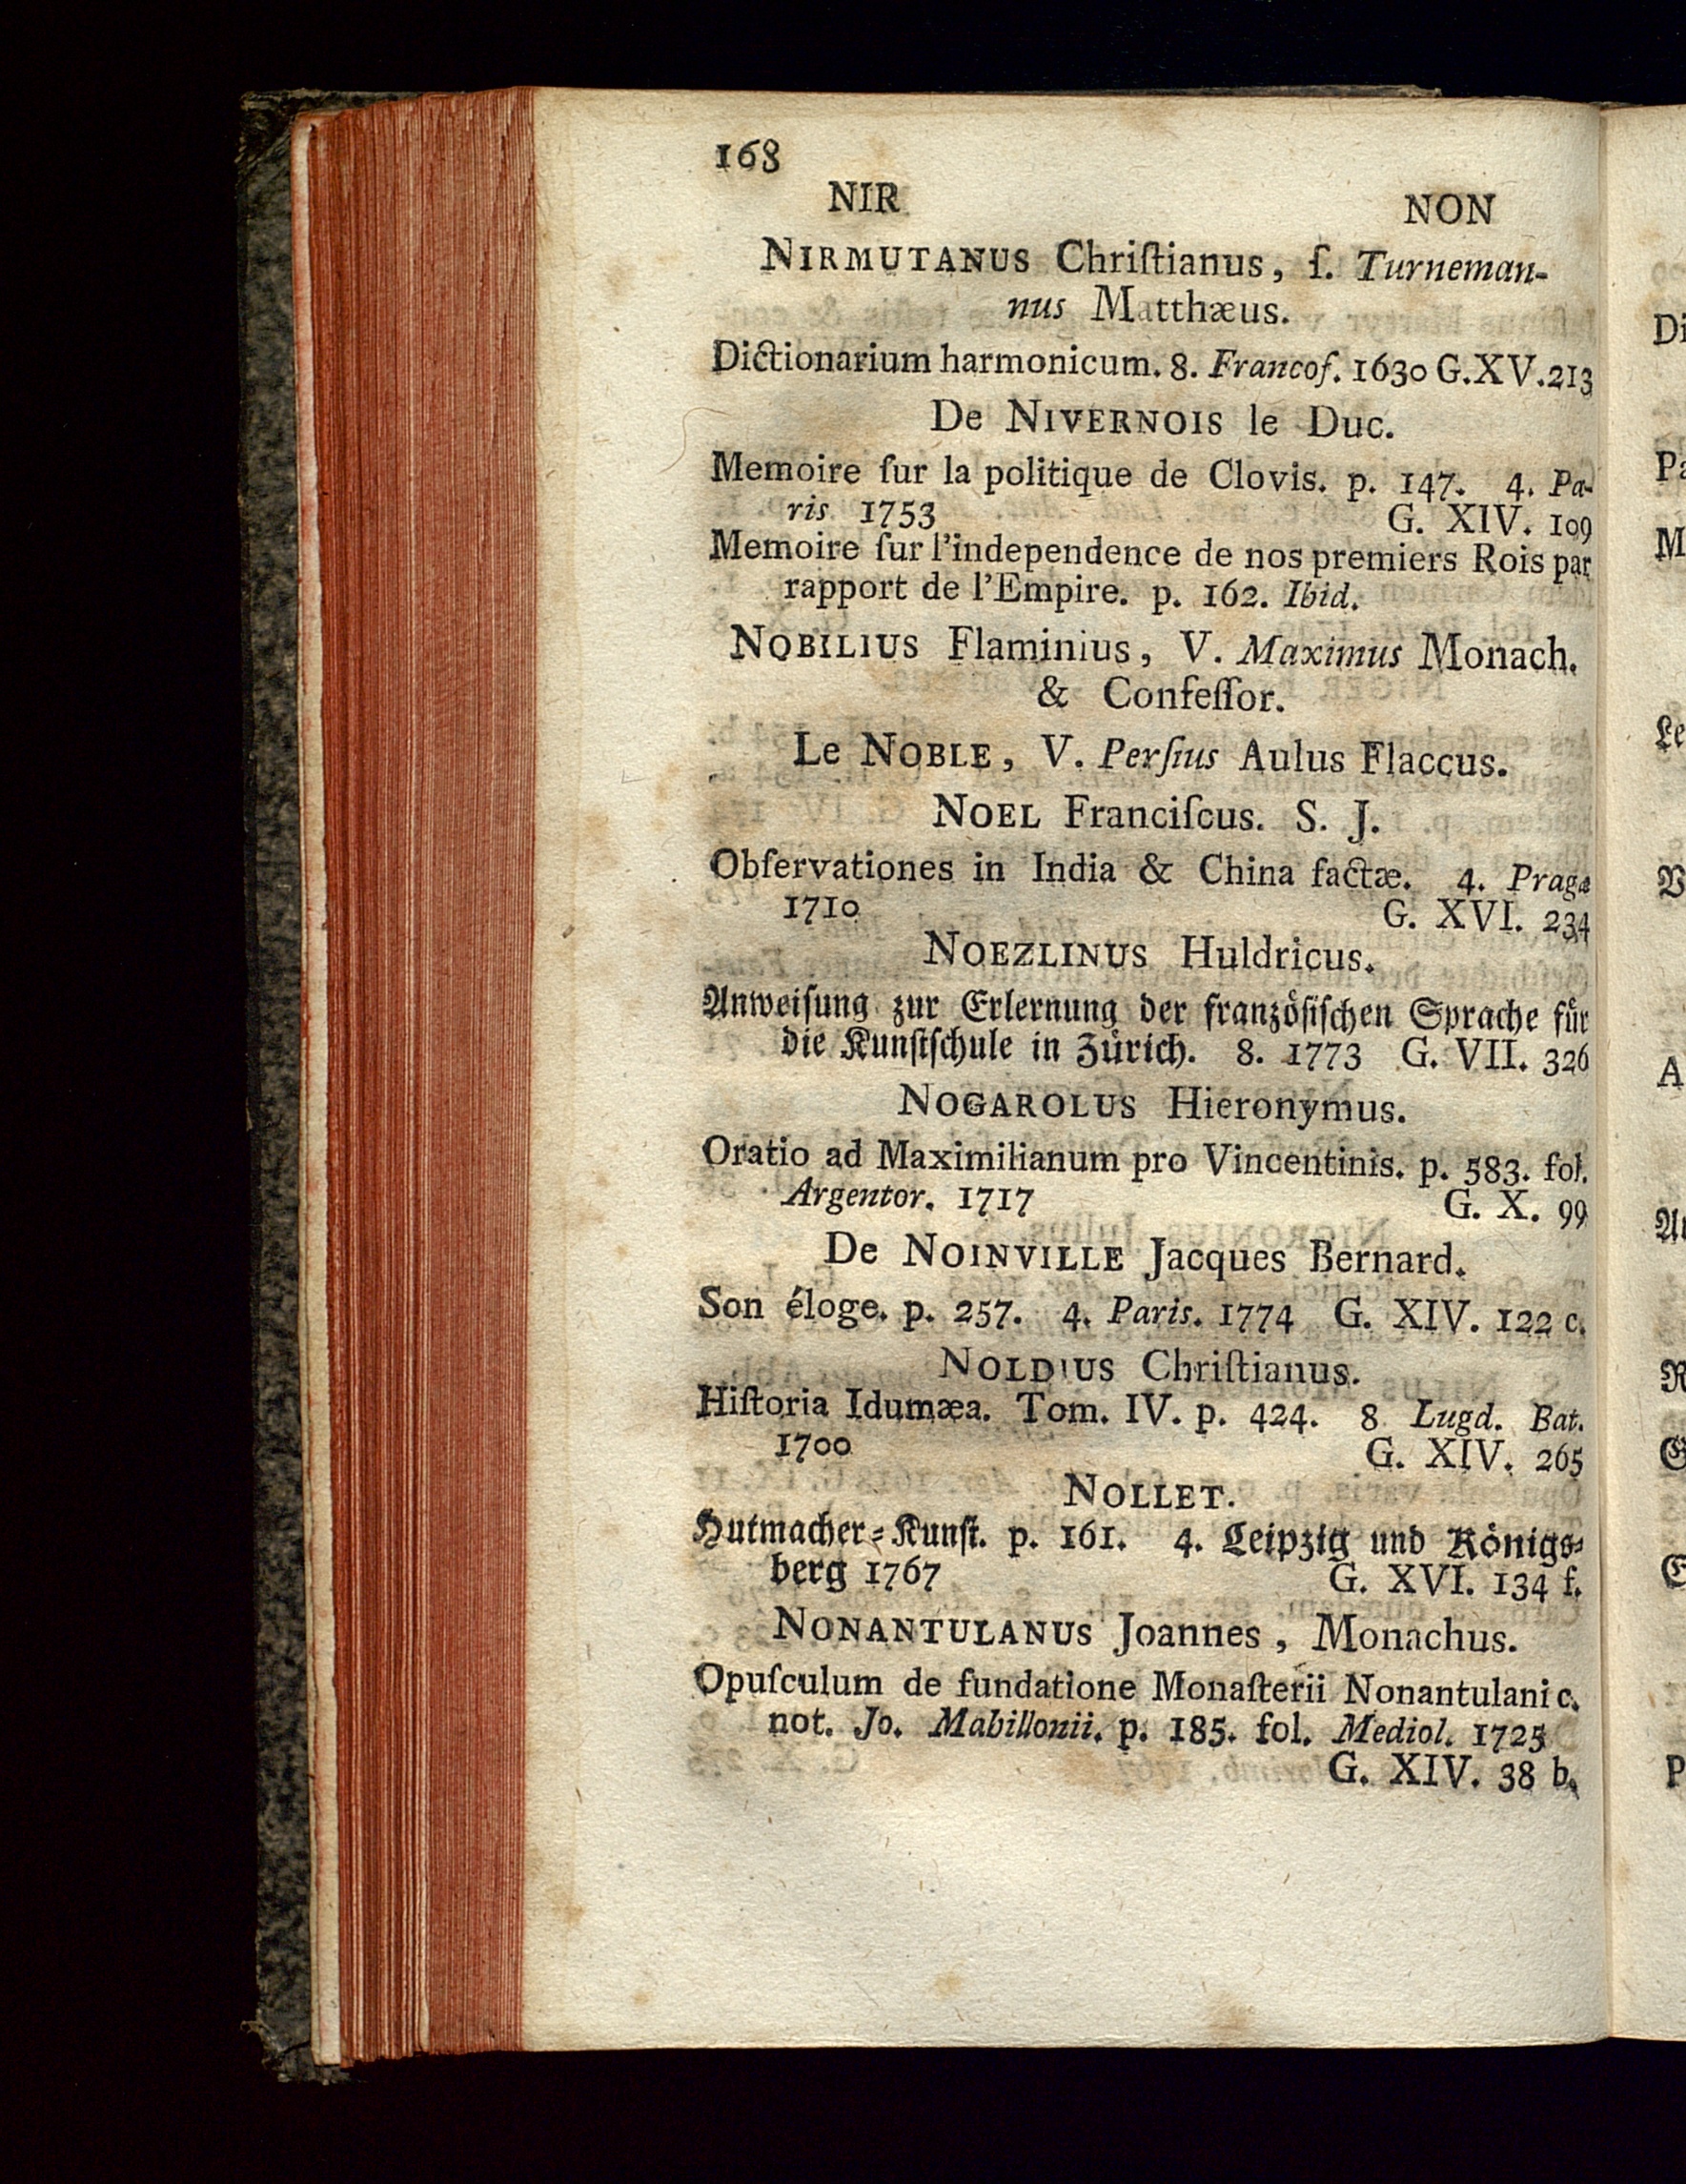 168
NIR NON
NIRMUTANUS Chriſtianus, ſ. Turneman-
nus Matthæus.
Dictionarium harmonicum. 8. Francof. 1630 G. XV. 213
De NIVERNOIS le Duc.
Memoire ſur la politique de Clovis. p. 147. 4. Pa-
ris 1753 G. XIV. 109
Memoire ſur l'independence de nos premiers Rois par
rapport de l'Empire. p. 162. Ibid.
NOBILIUS Flaminius, V. Maximus Monach.
& Confeſſor.
Le NOBLE, V. Perſius Aulus Flaccus.
NOEL Franciſcus. S. J.
Obſervationes in India & China factæ. 4. Pragæ
1710 G. XVI. 234
NOEZLINUS Huldricus.
Anweiſung zur Erlernung der franzöſiſchen Sprache für
die Kunſtſchule in Zürich. 8. 1773 G. VII. 326
NOGAROLUS Hieronymus.
Oratio ad Maximilianum pro Vincentinis. p. 583. fol.
Argentor. 1717 G. X. 99
De NOINVILLE Jacques Bernard.
Son éloge. p. 257. 4. Paris. 1774 G. XIV. 122 c.
NOLDIUS Chriſtianus.
Hiſtoria Idumæa. Tom. IV. p. 424. 8 Lugd. Bat.
1700 G. XIV. 265
NOLLET.
Hutmacher-Kunſt. p. 161. 4. Leipzig und Königs-
berg 1767 G. XVI. 134 f.
NONANTULANUS Joannes, Monachus.
Opuſculum de fundatione Monaſterii Nonantulani c.
not. Jo. Mabillonii. p. 185. fol. Mediol. 1725
G. XIV. 38 b.
Di
Pa
M
Le
V
A
R
G
E
P